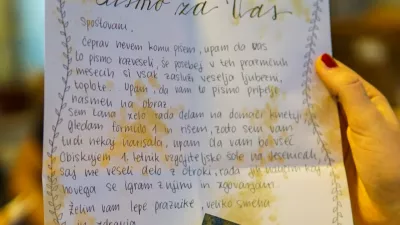 Pismo za Vas
Spoštovani,
čeprav nevem komu pišem, upam da vas
to pismo razveseli, še posebej v teh prazničnih
mesecih si vsak zasluži veselja ljubezni,
toplote. Upam, da vam to pismo pripelje
nasmeh na obraz.
Sem Lana. Zelo rada delam na domači kmetiji,
gledam formulo 1 in rišem, zato sem vam
tudi nekaj narisala, upam da vam bo všeč.
Obiskujem 1. letnik vzgojiteljsko šole na
saj me veseli delo z otroki, rada jih
novega se igram z njimi in zgovarjam.
Želim vam lepe praznike, veliko smeha
in zdravja